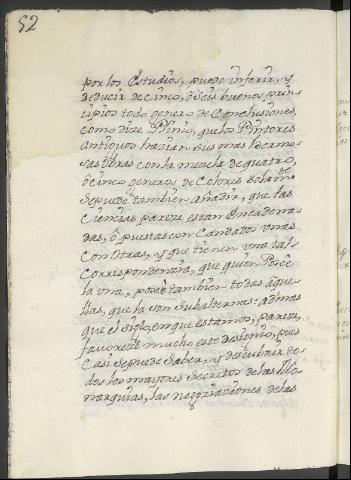 52
por los Estudios, puede inferir, y
deducir de cinco, ô seis buenos prin
cipios todo genero de Conclusiones,
como dize Plinio, que los Pintores
antiguos hazian sus mas hermo
sas obras con la mezcla de quatro,
ô cinco generos de Colores solam.te
Se puede tambien añadir, que las
Ciencias pareze estan Encadena
das, ô puestas con Candados unas
con Otras, y que tienen una tal
Correspondencia, que quien Posêe
la una, posêe tambien todas aque
llas, que la son Subalternas: ademas
que el Siglo, en que estamos, pareze,
favoreze mucho este designio, pues
Casi se puede Saber, y descubrir to
dos los mayores Secretos de las Mo
narquias, las negoziaciones de las